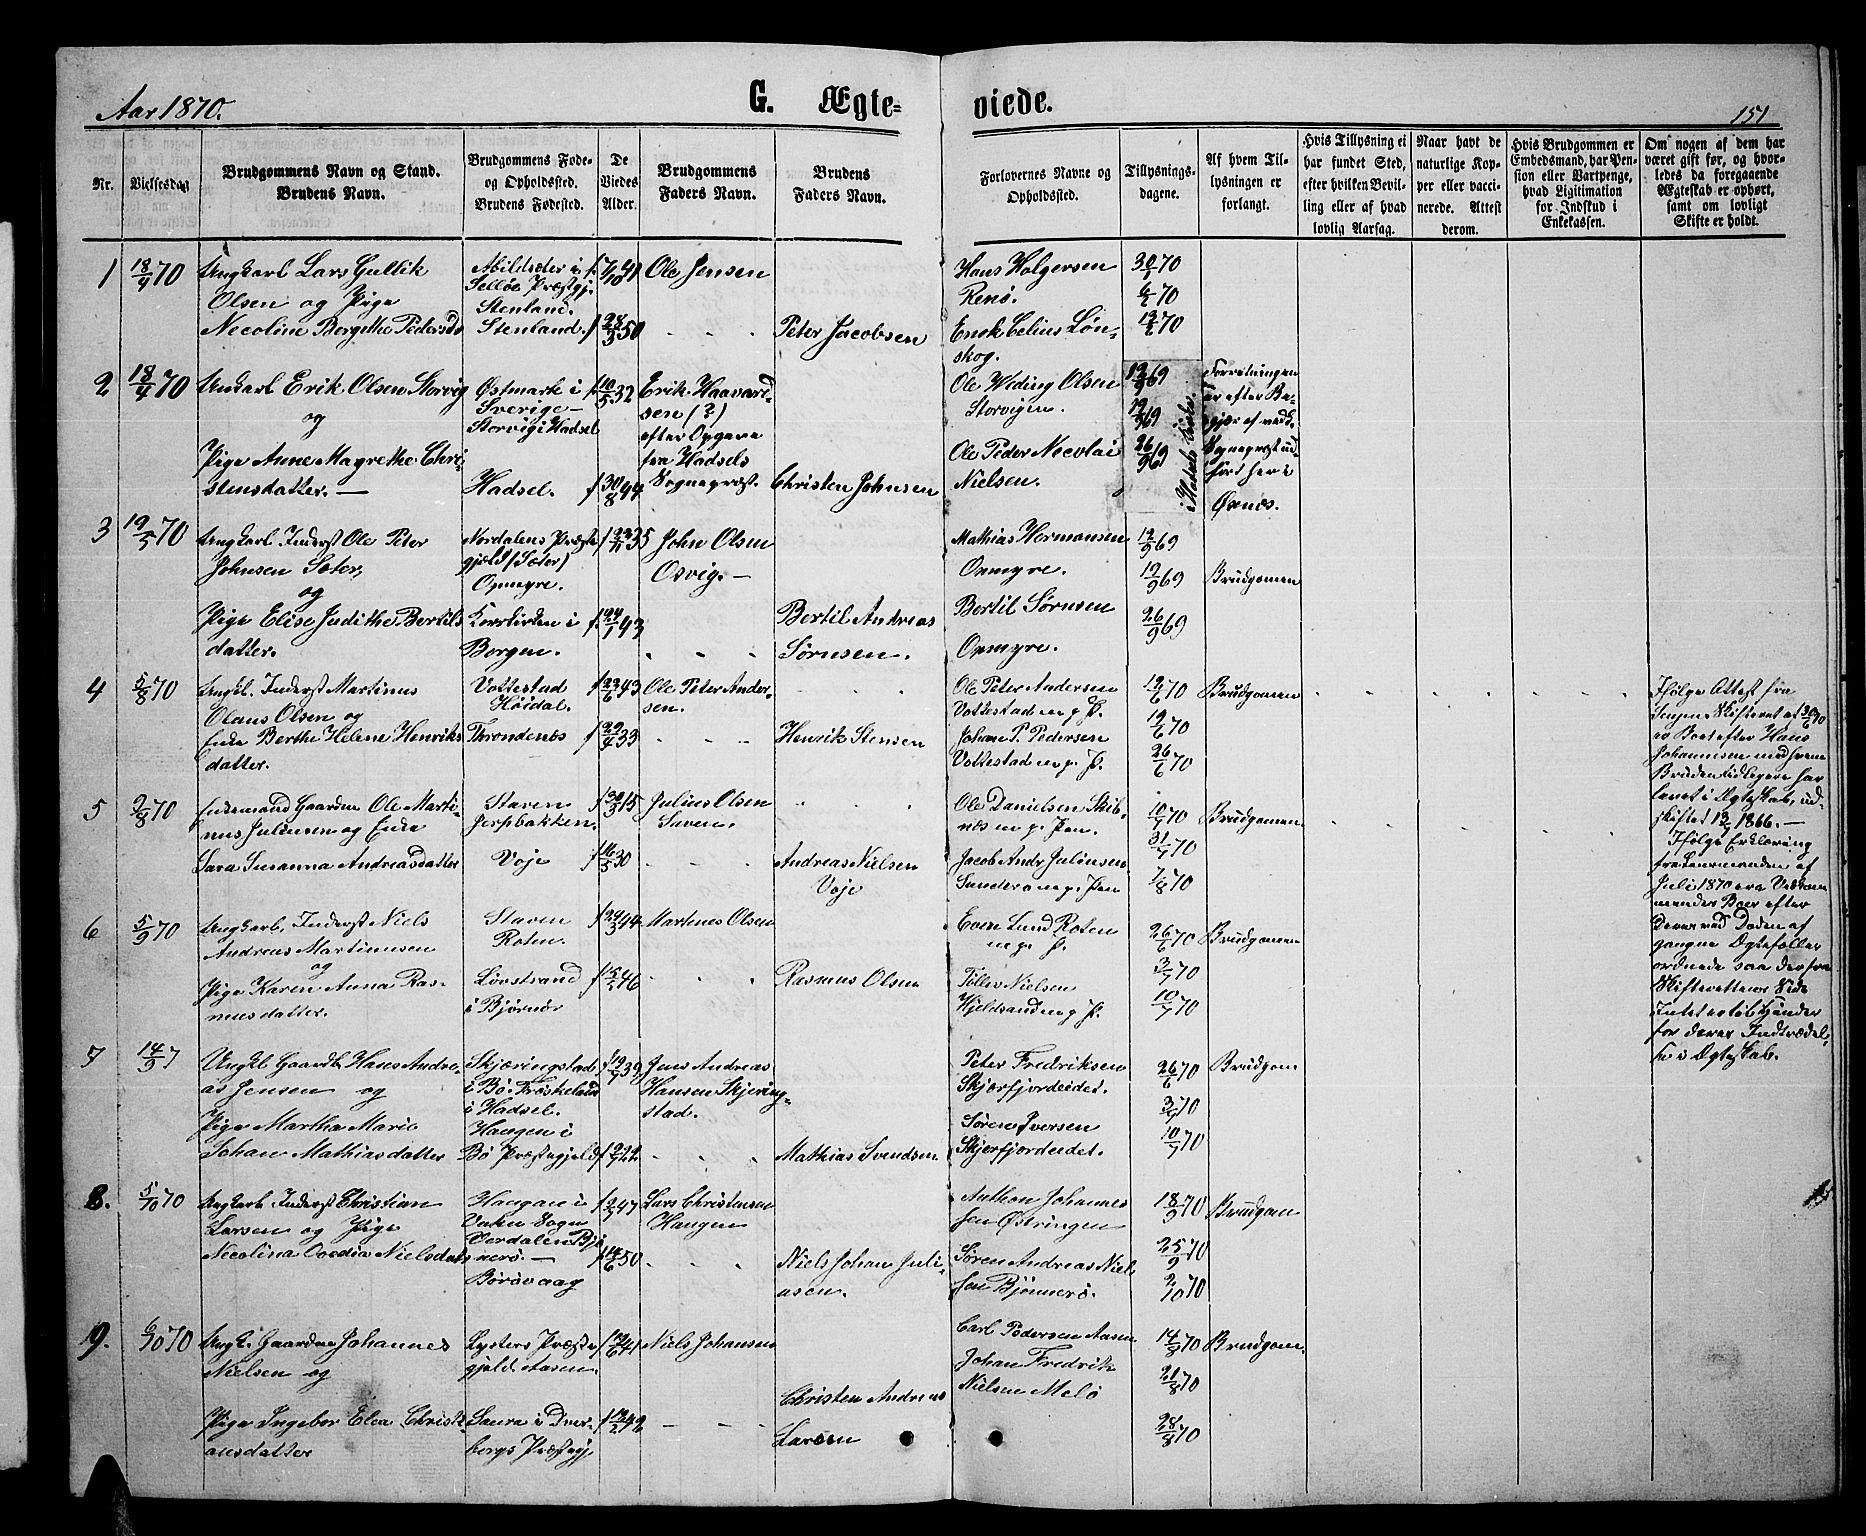 Aar 1870.
G. Ægte-
viede.
151
Nr.
Vielsesdag
Brudgommens Navn og Stand.
Brudens Navn.
Brudgommens Føde-
og Opholdssted.
Brudens Fødested.
De
Viedes
Alder.
Brudgommens
Faders Navn.
Brudens
Faders Navn.
Forlovernes Navne og
Opholdssted.
Tillysnings-
dagene.
Af hvem Til-
lysningen er
forlangt.
Hvis Tillysning ei
har fundet Sted,
efter hvilken Bevil-
ling eller af hvad
lovlig Aarsag.
Naar havt de
naturlige Kop-
per eller vacci-
nerede. Attest
derom.
Hvis Brudgommen er
Embedsmand, har Pen-
sion eller Vartpenge,
hvad Ligitimation
for Indskud i
Enkekassen.
Om nogen af dem har
været gift før, og hvor-
ledes da foregaaende
Ægteskab er ophørt,
samt om lovligt
Skifte er holdt.
1
18/4 70
Ungkarl Lars Gullik
Olsen og Pige
Necoline Bergithe Pedersd
Selløe Præstgj.
Stenland.
Stenland.
f. 7/10 41
f 28/3 50
Ole Jensen
Peter Jacobsen
Hans Holgersen
Renø.
Enok Celius Løn-
skog.
30/1 70
6/2 70
13/2 70
2
18/4 70
Unkarl Erik Olsen Storvig
og
Pige Anne Magrethe Chri-
stensdatter. —
Østmark i
Sverige —
Storvig i Hadsel
Hadsel.
f 10/5 32
f 30/8 44
Erik Haavard
sen (?)
efter Opgave
fra Hadsels
Sognepræst.
Christen Johnsen
Ole Weding Olsen
Storvigen.
Ole Peder Necolai
Nielsen.
12/9 69
19/9 69
26/9 69
i Hadsels Kirke.
Forretningen
er efter Be-
gjær af vedk.
Sognepræst ud-
ført her i
Øxnæs.
3
19/5 70
Ungkarl Inderst Ole Peter
Johnsen Sæter,
og
Pige Elise Judithe Bertils
datter.
Nordalens Præste
gjeld (Sæter)
Opmyre.
Korskirken i
Bergen.
f 22/11 35
f. 24/1 43
John Olsen
Osvig. —
Bertil Andreas
Sørnsen.
Mathias Hermansen
Opmyre.
Bertil Sørnsen
Opmyre.
12/9 69
19/9 69
26/9 69
Brudgomen
4
5/8 70
Ungkl. Inderst Martinus
Olaus Olsen og
Enke Berthe Helene Henriks
datter.
Vottestad
Høidal.
Throndenes
f 23/6 43
f 29/4 33
Ole Peter Ander-
sen.
Henrik Stensen
Ole Peter Andersen
Vottestad m. p. P.
Johan P. Pedersen
Vottestad m. p. P.
12/6 70
19/6 70
26/6 70
Brudgomen
Ifølge Attest fra
Senjens Skifteret af 20/6 70
er Boet efter Hans
Johannesen med hvem
Bruden tidligere har
levet i Ægteskab, ud-
skiftet 12/7 1866. —
5
9/8 70
Enkemand Gaardm Ole Marti-
nus Juliusen og Enke
Sara Susanna Andreasdatter
Staven
Jorpbakken.
Voje
f 30/3 15
f 16/5 30
Julius Olsen
Saven.
Andreas Nielsen
Voje
Ole Danielsen Skib-
næs m. p. Pen.
Jacob Andr Juliusen
m. p. Pen
10/7 70
31/7 70
7/8 70
Brudgomen
Ifølge Erklæring
fra Lensmanden af
Juli 1870 ere Vedkom
mendes Boer efter
Deres ved Døden af
gangne Ægtefæller
ordnede saa der fra
Skifterettens Side
Intet er til Hinder
for deres Indtrædel-
se i Ægteskab.
6
5/9 70
Ungkarl, Inderst Niels
Andreas Martinusen
og
Pige Karen Anna Ras-
musdatter.
Staven
Roten.
Løvstrand
i Bjørnør
f 29/3 44
46
Martines Olsen
Rasmus Olsen
Even Lund Roten
m. p. P.
Tøllev Nielsen
Hjeldsand m. p. P.
26/6 70
3/7 70
10/7 70
Brudgomen
7
14/9 7
Ungkl Gaardb Hans Andre-
as Jensen og
Pige Martha Marie
Johan Mathiasdatter
Skjæringstad
i Bø. Frøskeland
i Hadsel.
Haugen i
Bø Præstegjeld
f 19/7 39
f 9/7 22
Jens Andreas
Hansen Skjering-
stad.
Mathias Svendsen
Peter Fredriksen
Skjørfjordeidet.
Søren Iversen
Skjorfjordeidet.
26/6 70
3/7 70
10/7 70
Brudgom
8.
5/10 70
Ungkarl Inderst Christian
Larsen og Pige
Necolina Ovedia Nielsdat
Haugan i
Vuku Sogn
Verdalen Bjø
nerø. —
Børøvaag
f 2/7 47
f 14/6 50
Lars Christensen
Haugen
Niels Johan Juli-
usen.
Anthon Johannes
sen Østringen
Søren Andreas Niel
sen Bjønnerø.
18/9 70
25/9 70
2/10 70
Brudgom
9.
6/10 70
Ungk. Gaardm Johannes
Nielsen og
Pige Ingebor Elea Christi-
ansdatter
Lysters Præste
gjeld. Aasen.
Saura i Dver-
bergs Præstegj.
f 12/6 41
f 12/2 42
Niels Johansen
Christen Andreas
Larsen
Carl Pedersen Aasen
Johan Fredrik
Nielsen Melø
14/8 70
21/8 70
28/8 70
Brudgom.